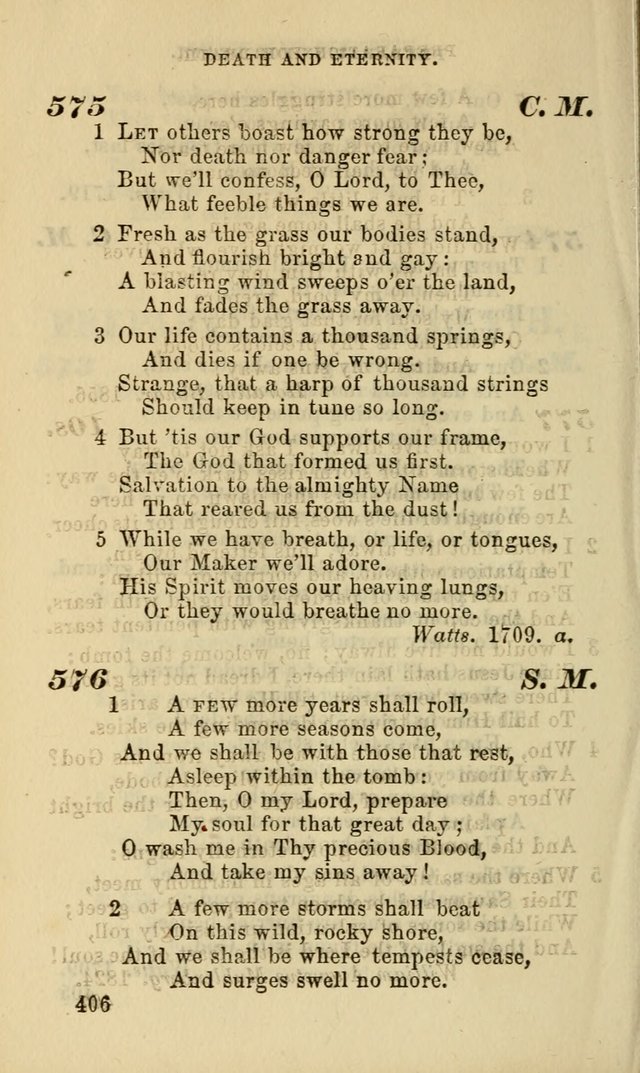 DEATH AND ETERNITY.
575 C. M.
1 LET others boast how strong they be,
Nor death nor danger fear;
But we'll confess, O Lord, to Thee,
What feeble things we are.
2 Fresh as the grass our bodies stand,
And flourish bright and gay:
A blasting wind sweeps o'er the land,
And fades the grass away.
3 Our life contains a thousand springs,
And dies if one be wrong.
Strange, that a harp of thousand strings
Should keep in tune so long.
4 But 'tis our God supports our frame,
The God that formed us first.
Salvation to the almighty Name
That reared us from the dust!
5 While we have breath, or life, or tongues,
Our Maker we'll adore.
His Spirit moves our heaving lungs,
Or they would breathe no more.
Watts. 1709. a.
576 S. M.
1 A FEW more years shall roll,
A few more seasons come,
And we shall be with those that rest,
Asleep within the tomb:
Then, O my Lord, prepare
My soul for that great day;
O wash me in Thy precious Blood,
And take my sins away!
2 A few more storms shall beat
On this wild, rocky shore,
And we shall be where tempests cease,
And surges swell no more.
406